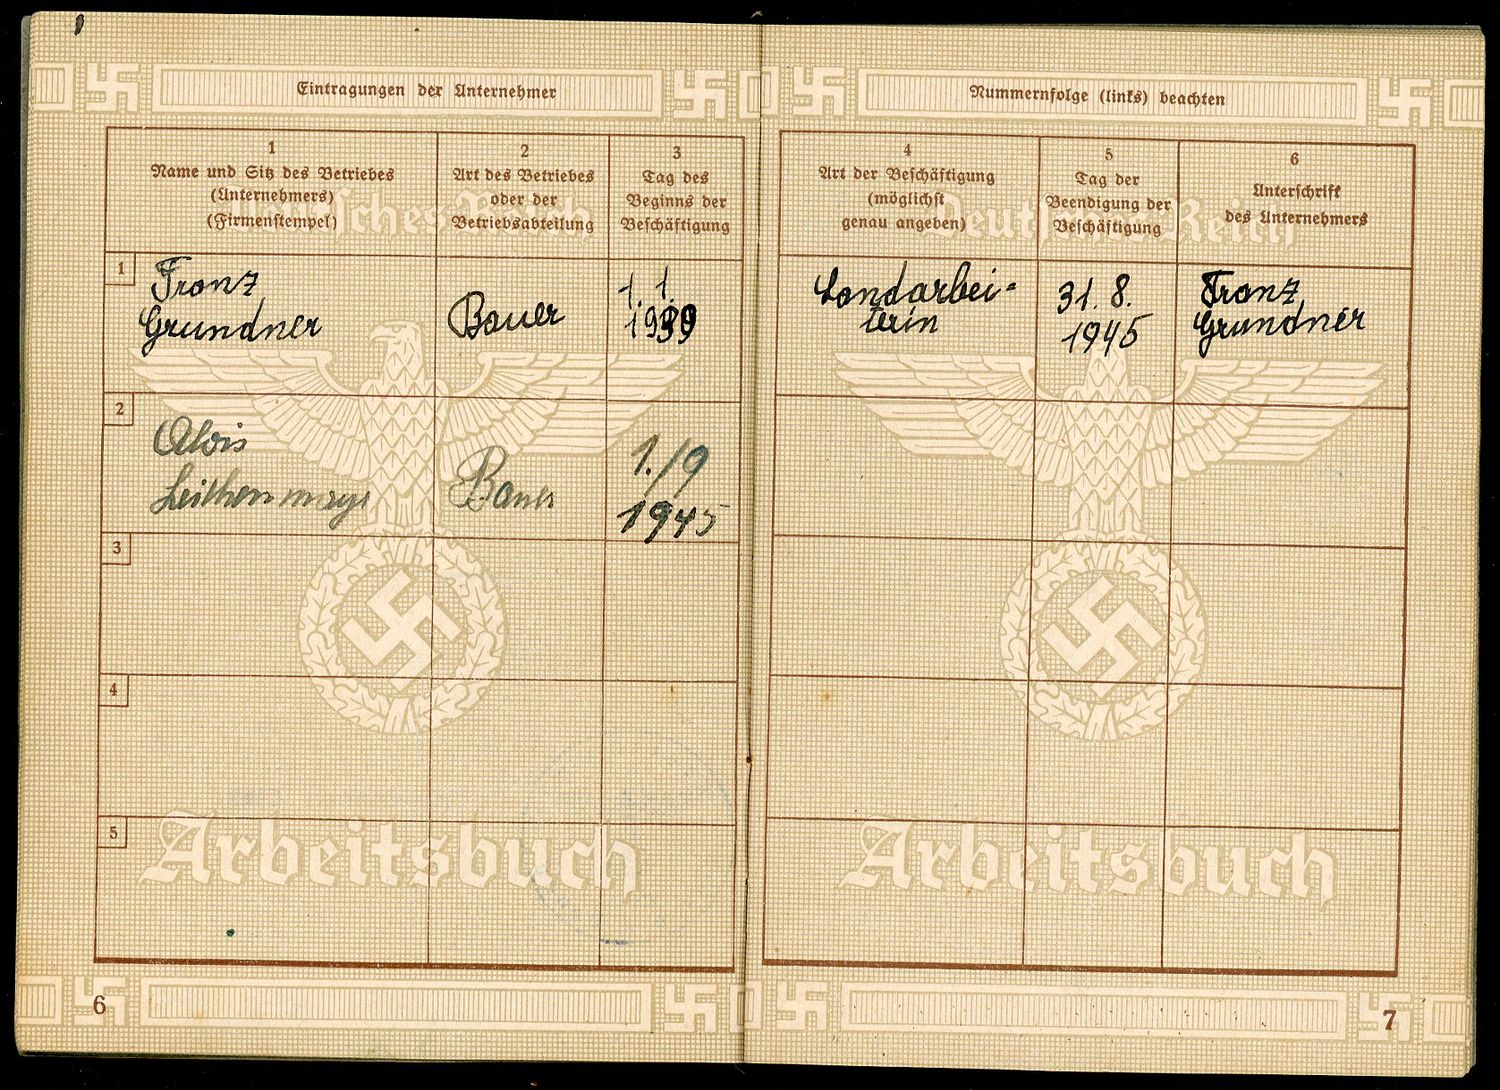 Eintragungen der Unternehmer
1
Name und Sitz des Betriebes
(Unternehmers)
(Firmenstempel)
2
Art des Betriebes
oder der
Betriebsabteilung
3
Tag des
Beginns der
Beschäftigung
1
Franz
Grundner
Bauer
1. 1.
1939
2
Alois
Bauer
1./9
1945
3
4
5
Arbeitsbuch
6
Nummernfolge (links) beachten
4
Art der Beschäftigung
(möglichst
genau angeben)
5
Tag der
Beendigung der
Beschäftigung
6
Unterschrift
des Unternehmers
Deutsches Reich
Landarbei-
terin
31. 8.
1945
Franz
Grundner
Arbeitsbuch
7